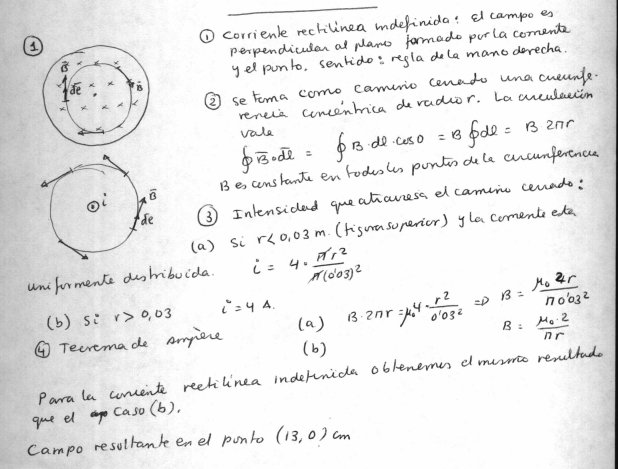 ① Corriente rectilínea indefinida: el campo es
perpendicular al plano formado por la corriente
y el punto. sentido: regla de la mano derecha.
② se toma como camino cerrado una circunfe-
rencia concéntrica de radio r. La circulación
vale
∮ B̅ · d̅l̅ = ∮ B · dl · cos 0 = B ∮ dl = B 2πr
B es constante en todos los puntos de la circunferencia
③ Intensidad que atraviesa el camino cerrado:
(a) Si r < 0,03 m. (figura superior) y la corriente está
uniformemente distribuida. i = 4 · πr² / π(0'03)²
(b) Si r > 0,03 i = 4 A.
④ Teorema de Ampère (a) B · 2πr = μ₀ 4 · r² / 0'03² ⇒ B = μ₀ 2r / π 0'03²
(b) B = μ₀ · 2 / πr
Para la corriente rectilínea indefinida obtenemos el mismo resultado
que el caso (b).
Campo resultante en el punto (13, 0) cm
1
B̅
d̅l̅
B̅
i
B̅
d̅l̅